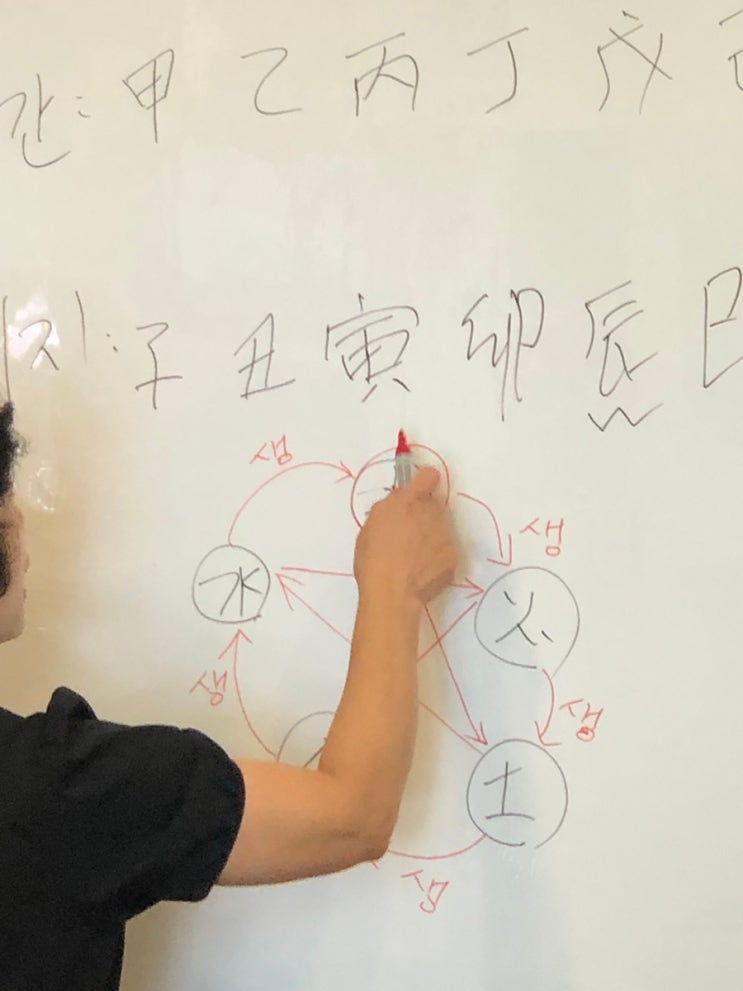 간: 甲 乙 丙 丁 戊
지: 子 丑 寅 卯 辰 巳
생
생
水
火
생
생
土
생